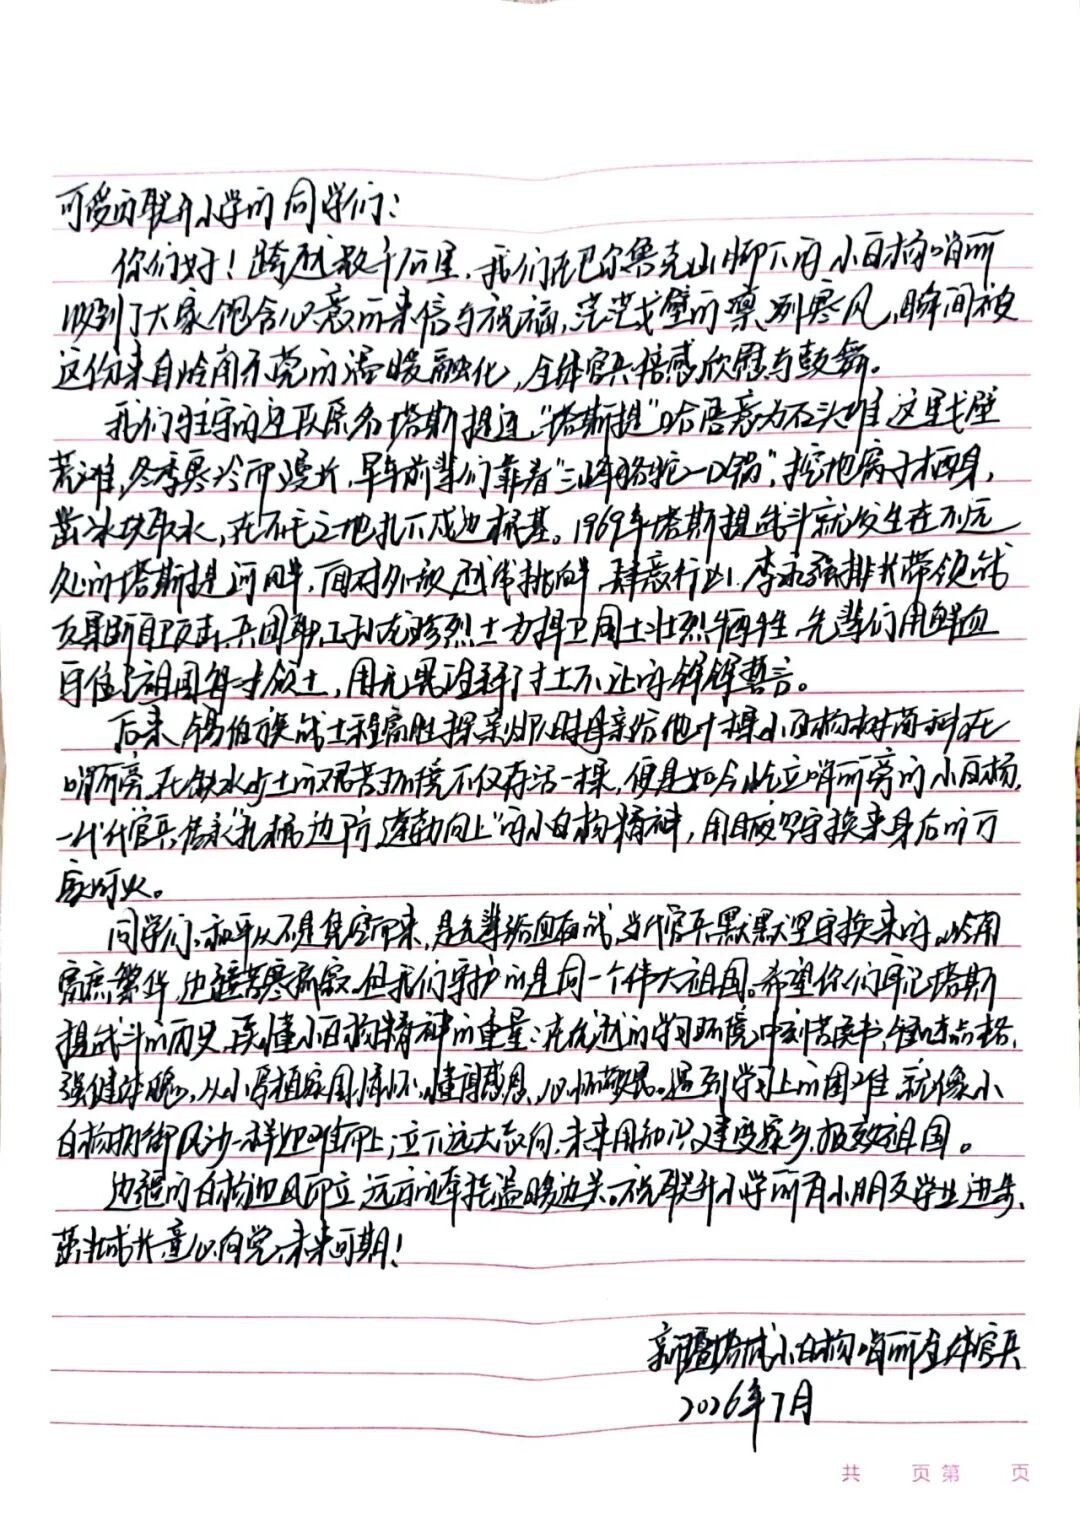 可爱的联升小学的同学们：
你们好！跨越数千公里，我们在巴尔鲁克山脚下的小白杨哨所
收到了大家饱含心意的来信与祝福，茫茫戈壁的凛冽寒风，瞬间被
这份来自岭南东莞的温暖融化，全体官兵倍感欣慰与鼓舞。
我们驻守的连队原名塔斯提连，“塔斯提”哈语意为石头滩，这里戈壁
荒滩，冬季寒冷而漫长，早年前辈们靠着“三峰骆驼一口锅”，挖地窝子栖身，
凿冰块取水，在不毛之地扎下戍边根基。1969年塔斯提战斗就发生在不远
处的塔斯提河畔，面对外敌越线挑衅、肆意行凶，李永强排长带领战
友果断自卫反击，兵团职工孙龙珍烈士为捍卫国土壮烈牺牲，先辈们用鲜血
守住了祖国每一寸领土，用无畏诠释了寸土不让的铮铮誓言。
后来，锡伯族战士程富胜探亲归队时母亲给他十棵小白杨树苗种在
哨所旁，在缺水少土的艰苦环境下仅存活一棵，便是如今屹立哨所旁的小白杨，
一代代官兵传承“扎根边防，蓬勃向上”的小白杨精神，用日夜坚守换来身后的万
家灯火。
同学们，和平从不是凭空而来，是先辈浴血奋战，当代官兵默默坚守换来的。岭南
富庶繁华，边疆苦寒孤寂。但我们守护的是同一个伟大祖国。希望你们牢记塔斯
提战斗的历史，读懂小白杨精神的重量；在优越的学习环境中刻苦读书，锤炼品格，
强健体魄，从小厚植家国情怀，懂得感恩，心怀敬畏。遇到学习上的困难，就像小
白杨抵御风沙一样迎难而上；立下远大志向，未来用知识建设家乡，报效祖国。
边疆的白杨迎风而立，远方的牵挂温暖边关。祝联升小学所有小朋友学业进步，
茁壮成长，童心向党，未来可期！
新疆塔城小白杨哨所全体官兵
2026年7月
共 页 第 页